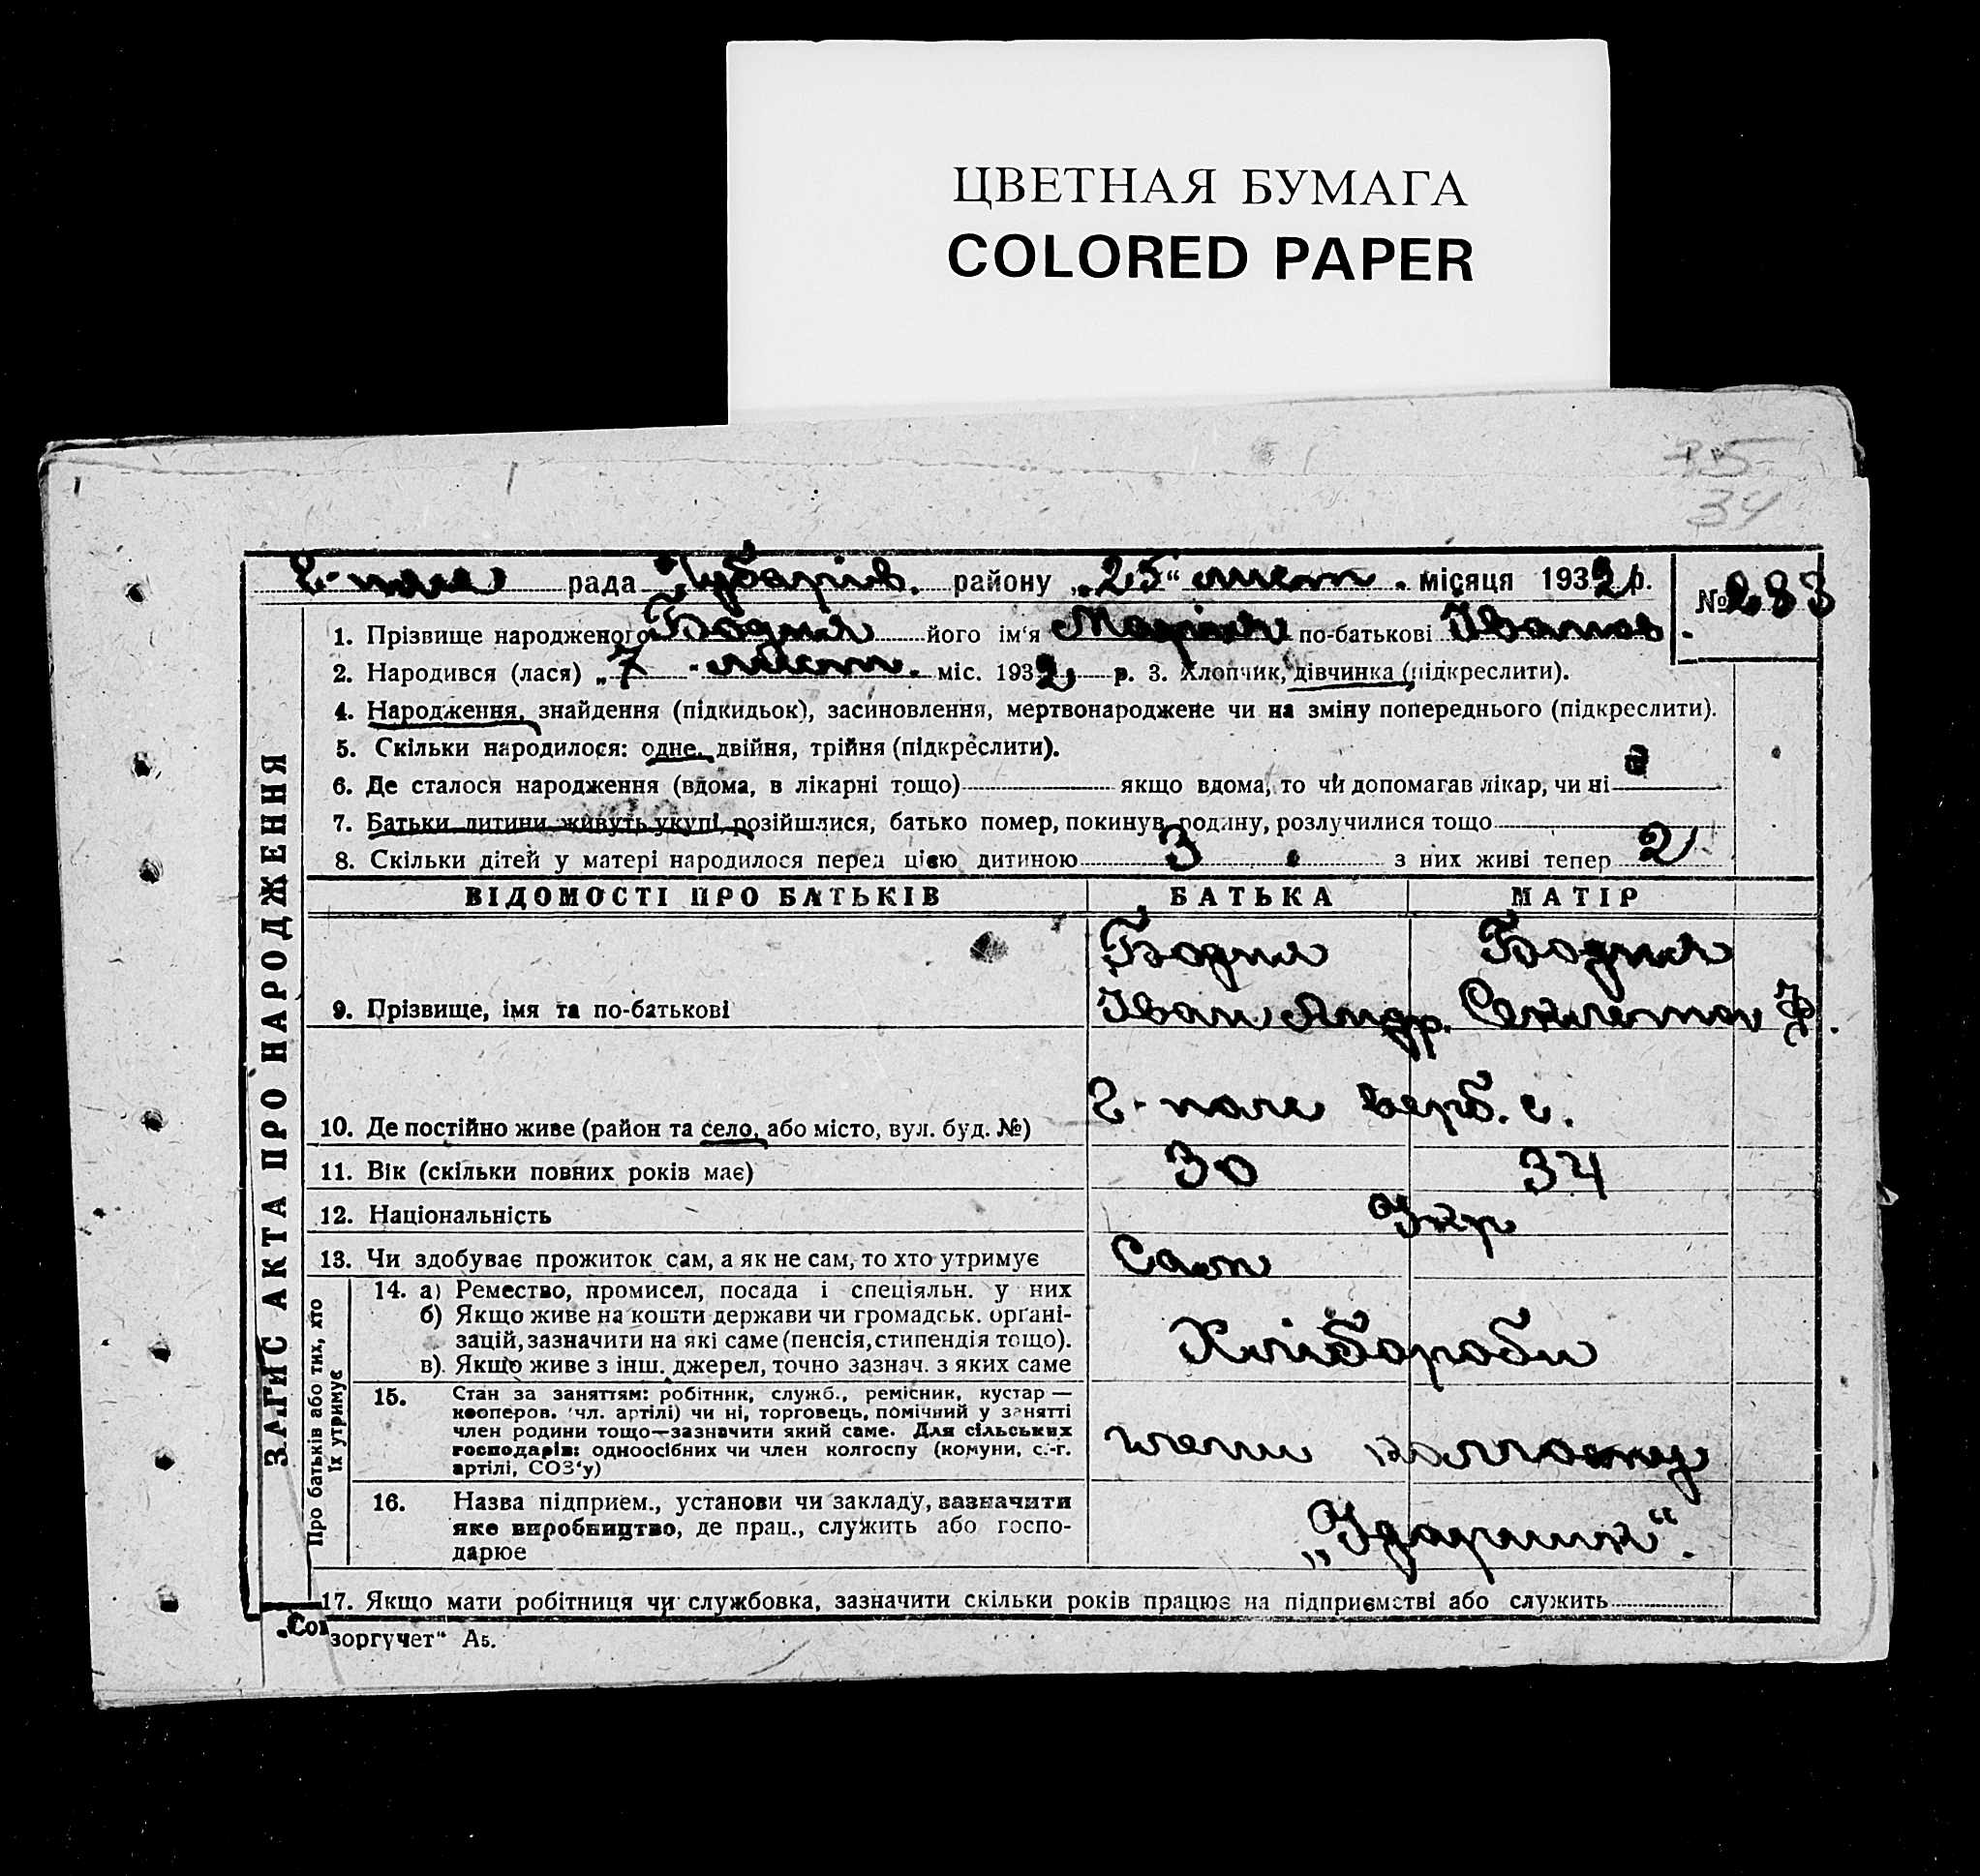 ЦВЕТНАЯ БУМАГА
COLORED PAPER
35
34
Г-поле рада районy „25“ лист. місяця 1932 р. № 283
1. Прізвище народженого Бодня його ім'я Марія по-батькові Іванов.
2. Народився (лася) „7 лист. міс. 1932 р. 3. Хлопчик, дівчинка (підкреслити).
4. Народження, знайдення (підкидьок), засиновлення, мертвонароджене чи на зміну попереднього (підкреслити).
5. Скільки народилося: одне, двійня, трійня (підкреслити).
6. Де сталося народження (вдома, в лікарні тощо) якщо вдома, то чи допомагав лікар, чи ні
7. Батьки дитини живуть укупі, розійшлися, батько помер, покинув родину, розлучилися тощо
8. Скільки дітей у матері народилося перед цією дитиною 3 з них живі тепер 2
ВІДОМОСТІ ПРО БАТЬКІВ БАТЬКА МАТІР
Бодня Бодня
9. Прізвище, імя та по-батькові Іван Андр. Ф.
Г-поле верб. с.
10. Де постійно живе (район та село, або місто, вул. буд. №)
11. Вік (скільки повних років має) 30 34
12. Національність Укр
13. Чи здобуває прожиток сам, а як не сам, то хто утримує Сам
14. а) Ремество, промисел, посада і спеціяльн. у них
б) Якщо живе на кошти держави чи громадськ. органі-
зацій, зазначити на які саме (пенсія, стипендія тощо). Хлібороби
в) Якщо живе з інш. джерел, точно зазнач. з яких саме
15. Стан за заняттям: робітник, служб., ремісник, кустар —
кооперов. чл. артілі) чи ні, торговець, помічний у занятті
член родини тощо—зазначити який саме. Для сільських
господарів: одноосібних чи член колгоспу (комуни, с.-г. члени колгоспу
артілі, СОЗ'у)
16. Назва підприєм., установи чи закладу, зазначити
яке виробництво, де прац., служить або госпо- „Ударник“.
дарює
17. Якщо мати робітниця чи службовка, зазначити скільки років працює на підприємстві або служить
зоргучет“ А5.
ЗАПИС АКТА ПРО НАРОДЖЕННЯ
Про батьків або тих, хто
їх утримує